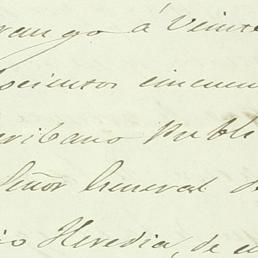 rango á Veinte
ocientos cincuen
cribano Publi
Señor General D
io Heredia, de e